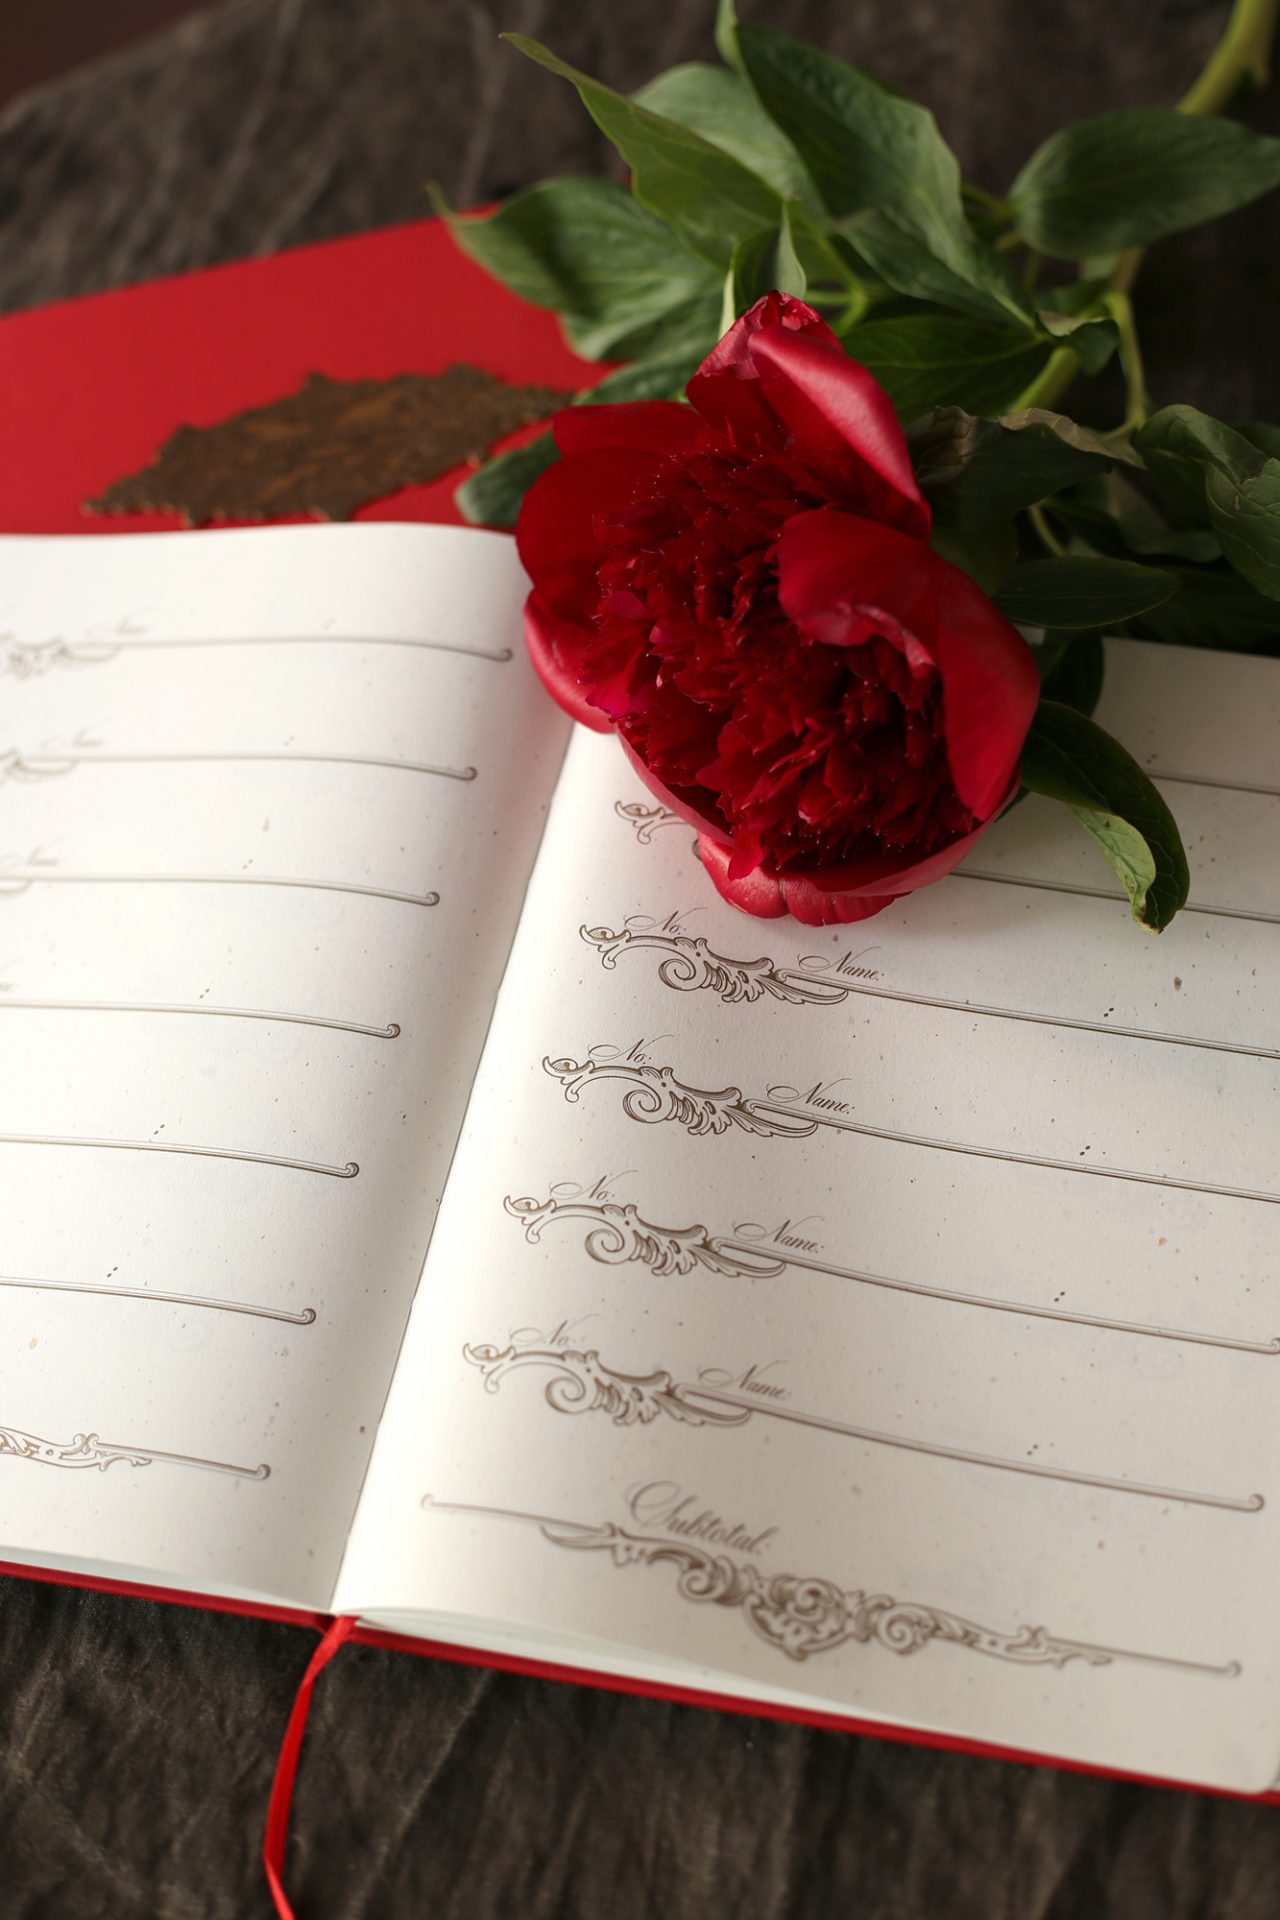 Name:
Name:
Name:
No: Name:
No: Name:
No: Name:
No: Name:
Subtotal: